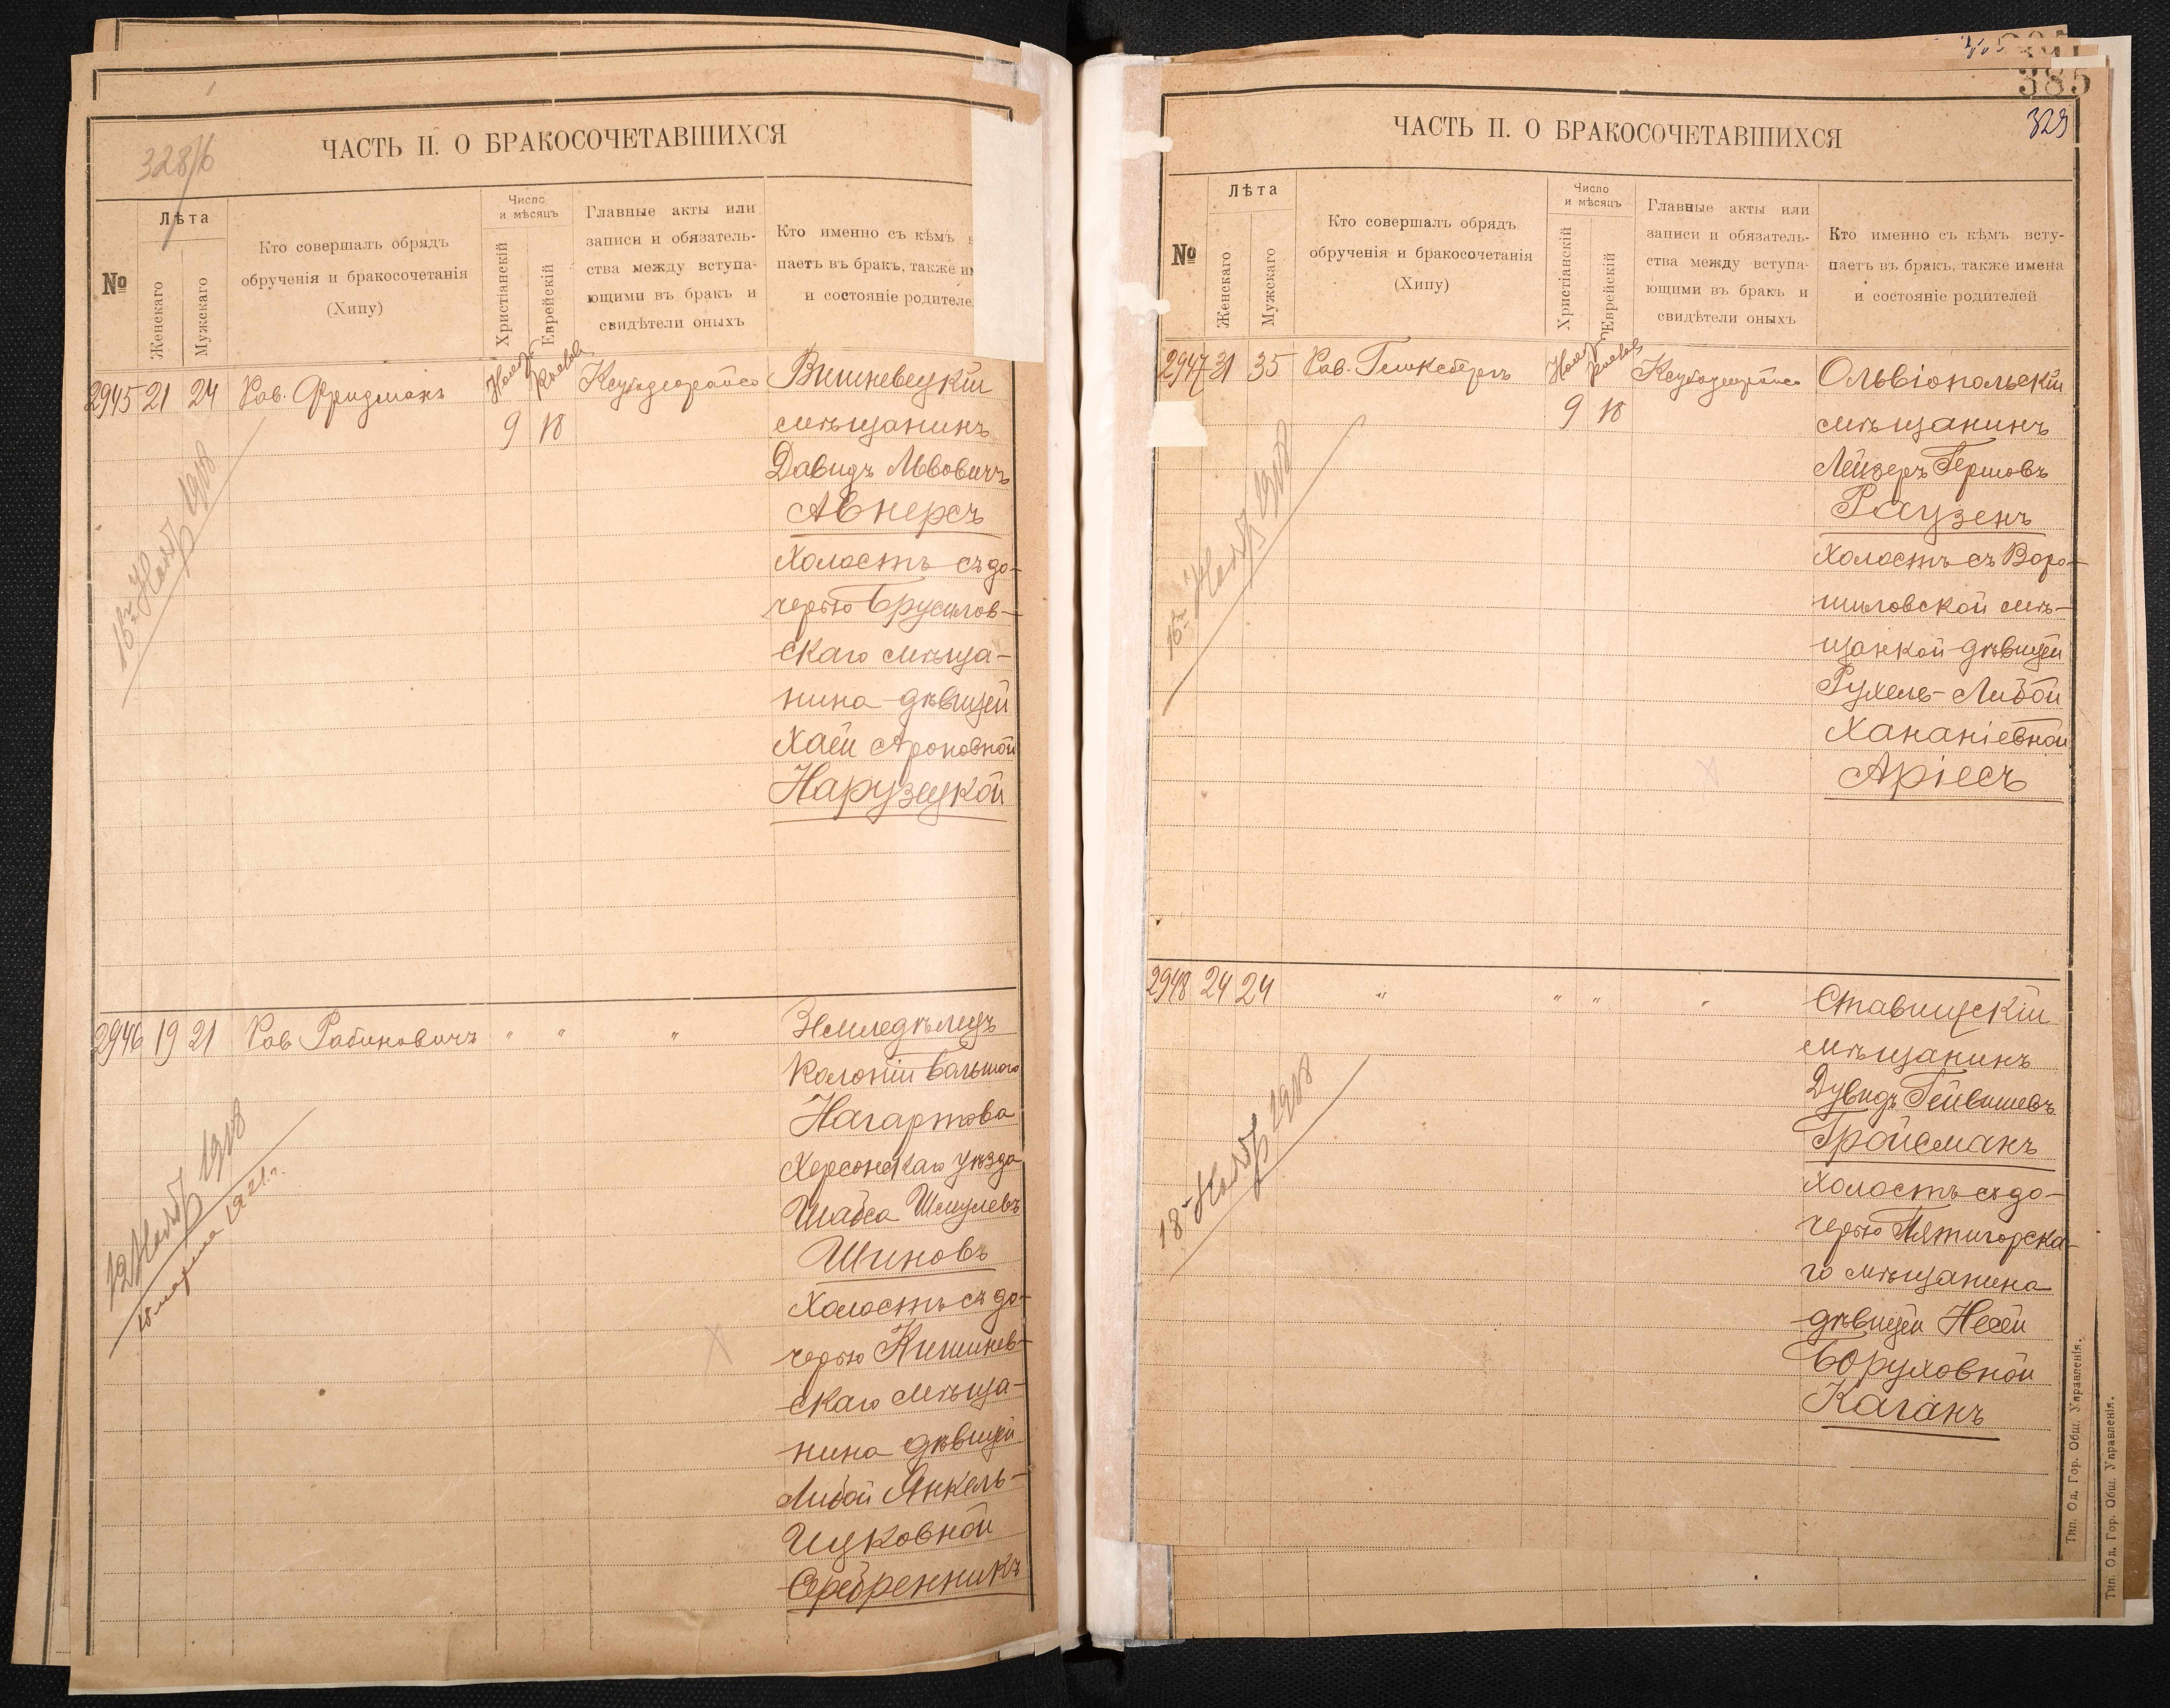 328/б
ЧАСТЬ II. О БРАКОСОЧЕТАВШИХСЯ
№
Лѣта
Женскаго
Мужскаго
Кто совершалъ обрядъ
обрученія и бракосочетанія
(Хипу)
Число
и мѣсяцъ
Христіанскій
Еврейскій
Главные акты или
записи и обязатель-
ства между вступа-
ющими въ бракъ и
свидѣтели оныхъ
Кто именно съ кѣмъ
паетъ въ бракъ, также
и состояніе родителе
2945 21 24 Рав. Фридманъ Нояб 9 18
Вишневецкій
мѣщанинъ
Давидъ Львовичъ
Авнерсъ
Холостъ съ до-
черью Брусилов-
скаго мѣща-
нина дѣвицей
Хаей Ароновной
Нарузецкой
16го Нояб 1918
2946 19 21 Рав Рабиновичъ " " "
Земледѣлецъ
Колоніи Большого
Нагартова
Херсонскаго уѣзда
Шабса Шмулевъ
Шиновъ
Холостъ съ до-
черью Кишинев-
скаго мѣща-
нина дѣвицей
Либой Янкель-
Ицковной
Серебренникъ
12 Нояб 1918
марта 1921 г.
385
329
ЧАСТЬ II. О БРАКОСОЧЕТАВШИХСЯ
№
Лѣта
Женскаго
Мужскаго
Кто совершалъ обрядъ
обрученія и бракосочетанія
(Хипу)
Число
и мѣсяцъ
Христіанскій
Еврейскій
Главные акты или
записи и обязатель-
ства между вступа-
ющими въ бракъ и
свидѣтели оныхъ
Кто именно съ кѣмъ всту-
паетъ въ бракъ, также имена
и состояніе родителей
2947 31 35 Рав. Нояб 9 18
Ольвіопольскій
мѣщанинъ
Лейзеръ Гершовъ
Раузенъ
Холостъ съ Воро-
шиловской мѣ-
щанкой дѣвицей
Рухель-Либой
Хананіевной
Аріесъ
16го Нояб 1918
2948 24 24 " " " "
Ставищскій
мѣщанинъ
Дувидъ Гейвишевъ
Гройсманъ
Холостъ съ до-
черью Пятигорска-
го мѣщанина
дѣвицей Несей
Боруховной
Каганъ
18 Нояб 1918
Тип. Од. Гор. Общ. Управленія.
Тип. Од. Гор. Общ. Управленія.